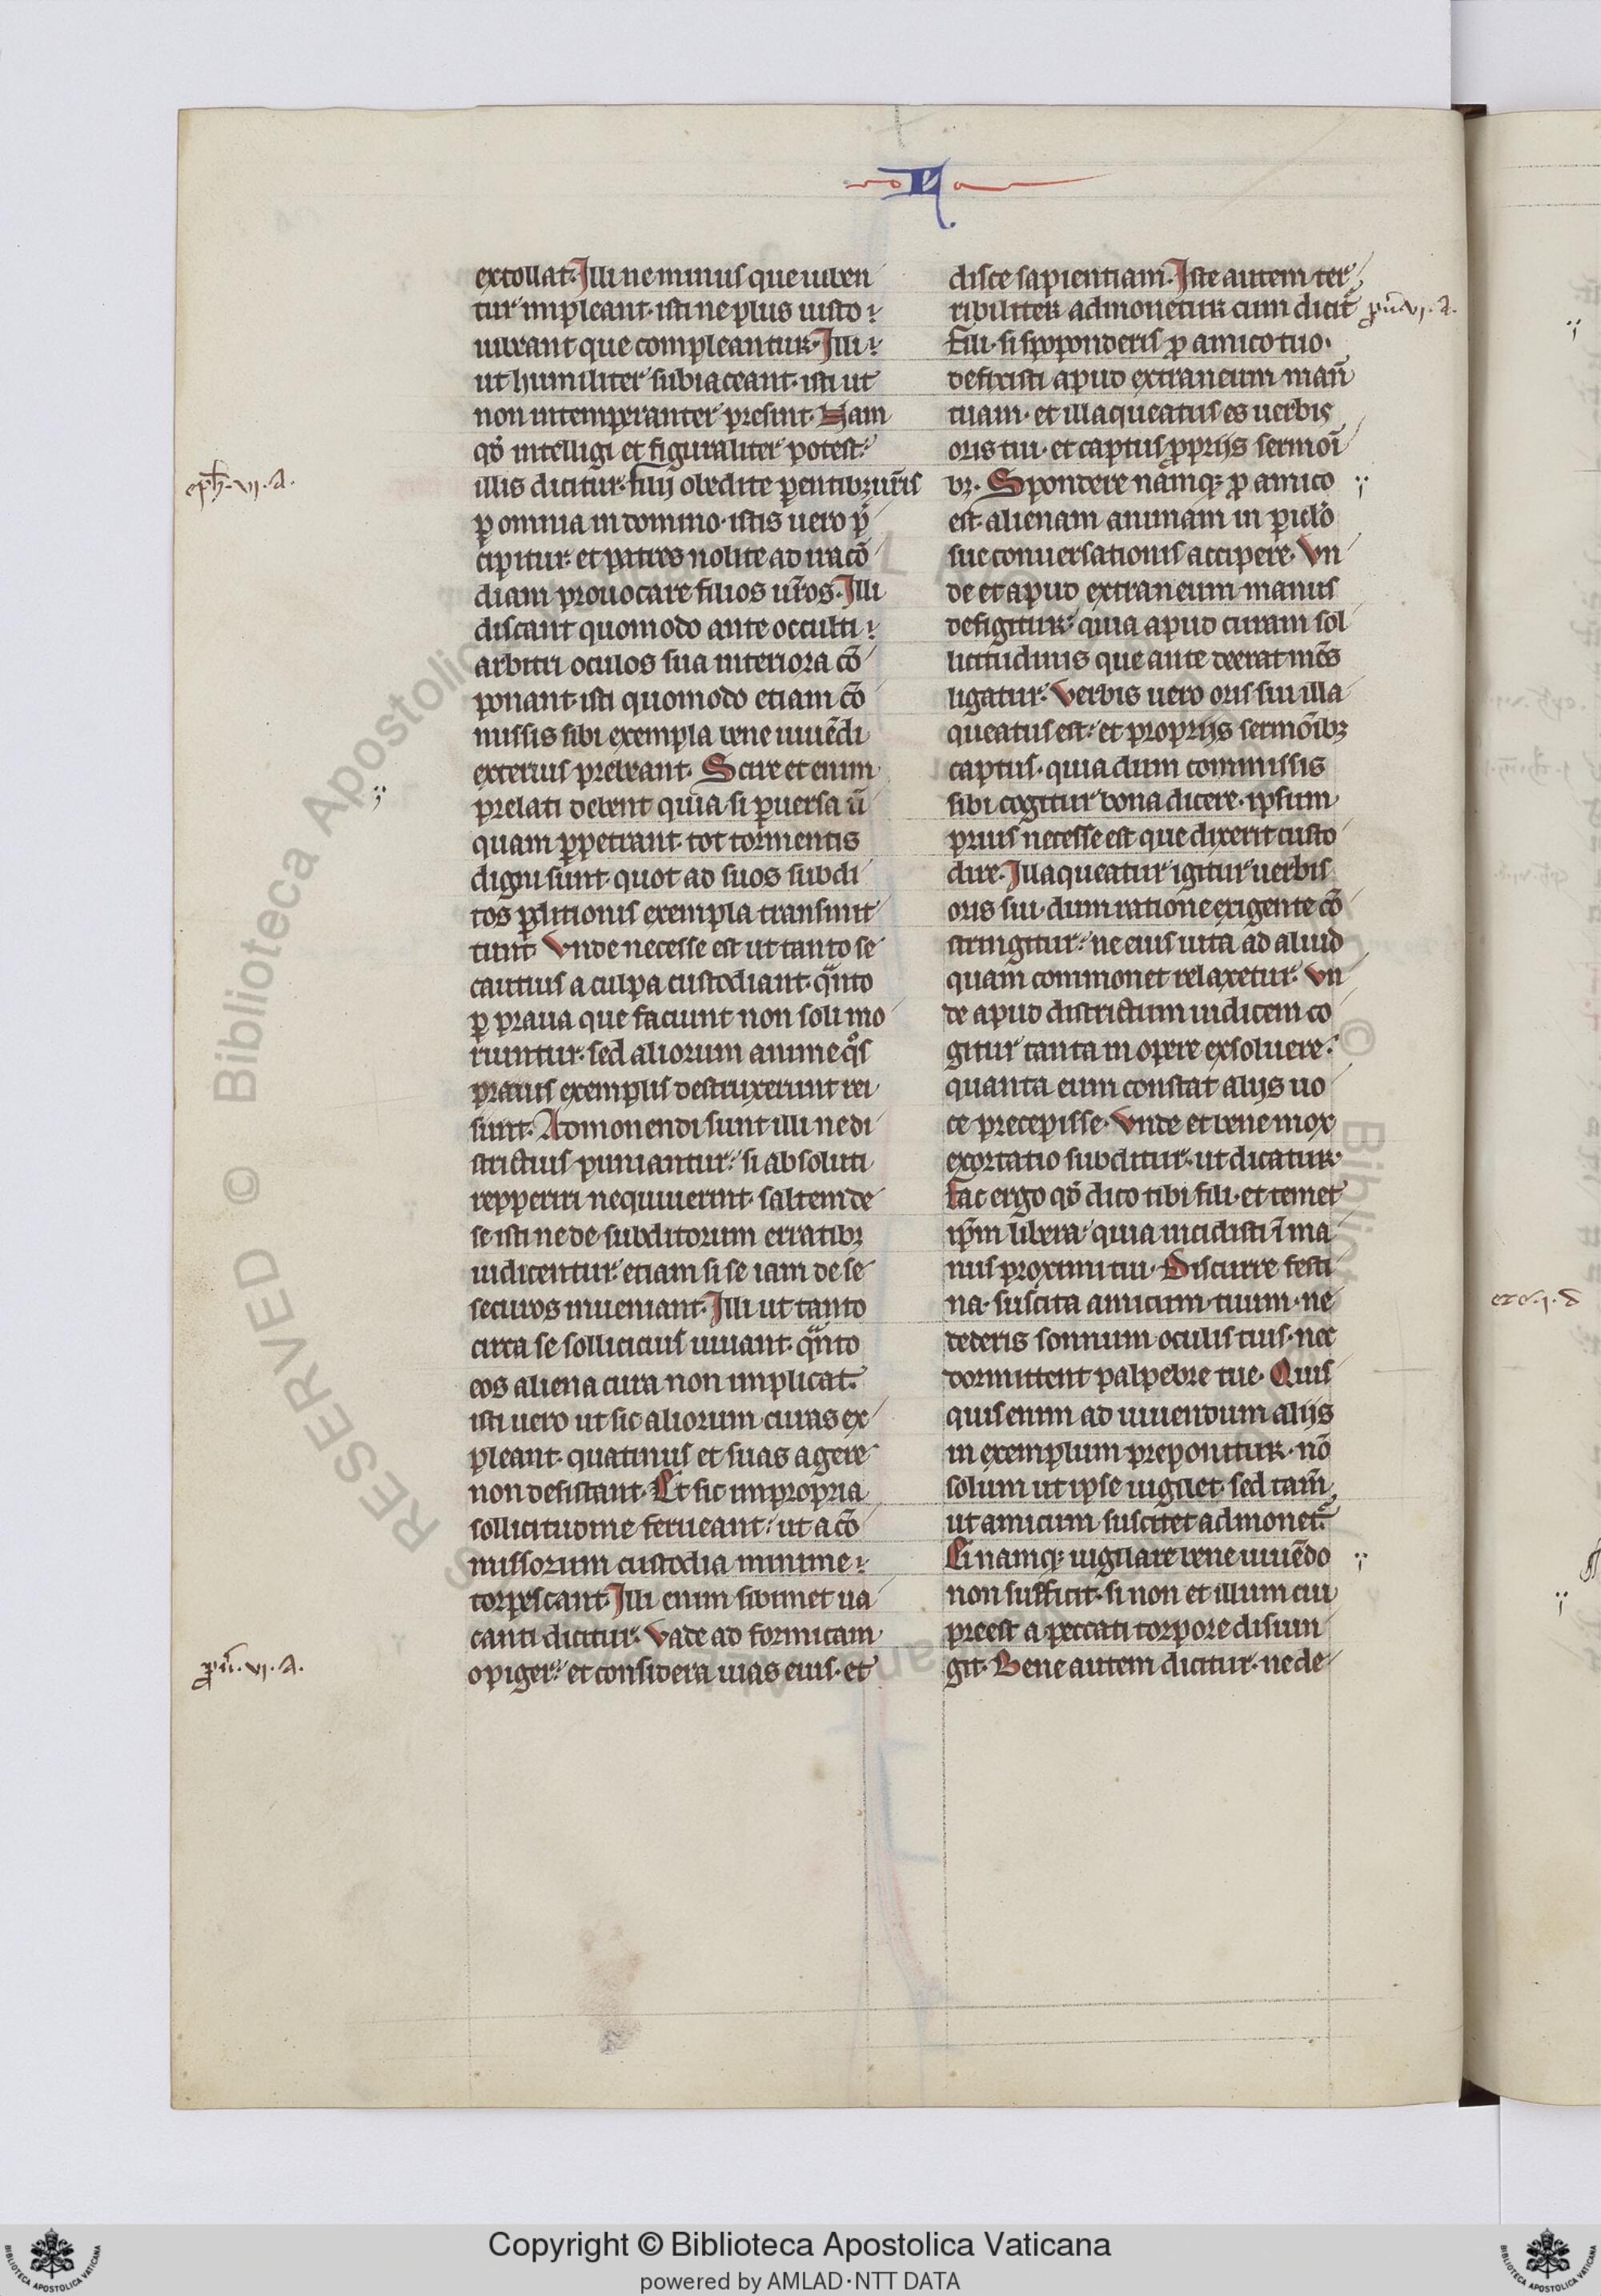 extollat. Illi ne minus que iuben
tur impleant. isti ne plus iusto
iubeant que compleantur. Illi
ut humiliter subiaceant. isti ut
non intemperanter presint. Nam
qd̾ intelligi et figuraliter potest.
eph̾. vi. a.
illis dicitur. filij obedite ꝑentibꝫ ur̃is
ꝑ omnia in domino. istis uero p̾
cipitur. et patres nolite ad iracũ
diam prouocare filios ur̃os. Illi
discant quomodo ante occulti
arbitri oculos sua interiora cõ
ponant. isti quomodo etiam cõ
missis sibi exempla bene uiuẽdi
exterius prebeant. Scire et enim
prelati debent quia si ꝑuersa ũ
quam ꝑpetrant. tot tormentis
digni sunt. quot ad suos subdi
tos ꝑditionis exempla transmit
tunt. Vnde necesse est ut tanto se
cautius a culpa custodiant. qͣnto
ꝑ praua que faciunt non soli mo
riuntur. sed aliorum anime qͦs
prauis exemplis destruxerunt rei
sunt. Admonendi sunt illi ne di
strictius puniantur. si absoluti
repperiri nequiuerint. saltem de
se isti ne de subditorum erratibꝫ
iudicentur. etiam si se iam de se
securos inueniant. Illi ut tanto
circa se sollicicius uiuant. qͣnto
eos aliena cura non implicat.
isti uero ut sic aliorum curas ex
pleant. quatinus et suas agere
non desistant. Et sic in propria
sollicitudine ferueant. ut a cõ
missorum custodia minime
torpescant. Illi enim sibimet ua
canti dicitur. Vade ad formicam
ꝓũ. vi. a.
o piger. et considera uias eius. et
disce sapientiam. Iste autem ter
ribiliter admonetur cum dicit̾
ꝓũ. vi. a.
Fili. si spoponderis ꝓ amico tuo.
defixisti apud extraneum man̄
tuam. et illaqueatus es uerbis
oris tui. et captus ꝓprijs sermoĩ
bꝫ. Spondere namqꝫ ꝓ amico
est. alienam animam in ꝑiclo̾
sue conuersationis accipere. Vn
de et apud extraneum manus
defigitur. quia apud curam sol
licitudinis que ante deerat mẽs
ligatur. Verbis uero oris sui illa
queatus est. et proprijs sermõibꝫ
captus. quia dum commissis
sibi cogitur bona dicere. ipsum
prius necesse est que dixerit custo
dire. Illaqueatur igitur uerbis
oris sui. dum ratione exigente cõ
stringitur. ne eius uita ad aliud
quam commonet relaxetur. Vn
de apud districtum iudicem co
gitur tanta in opere exsoluere.
quanta eum constat alijs uo
ce precepisse. Vnde et bene mox
exortatio subditur. ut dicatur.
Fac ergo qd̾ dico tibi fili. et temet
ip̃m libera. quia incidisti ĩ ma
nus proximi tui. Discurre festi
na. suscita amicum tuum. ne
dederis somnum oculis tuis. nec
dormittent palpebre tue. Quis
quis enim ad uiuendum alijs
in exemplum preponitur. nõ
solum ut ipse uigilet. sed tam̃
ut amicum suscitet admonet̾.
Ei namqꝫ uigilare bene uiuẽdo
non sufficit. si non et illum cui
preest a peccati torpore disiun
git. Bene autem dicitur. ne de
RESERVED © Biblioteca Apostolica
© Biblioteca
Copyright © Biblioteca Apostolica Vaticana
powered by AMLAD·NTT DATA
BIBLIOTECA APOSTOLICA VATICANA
BIBLIOTECA APOSTOLICA VATICANA